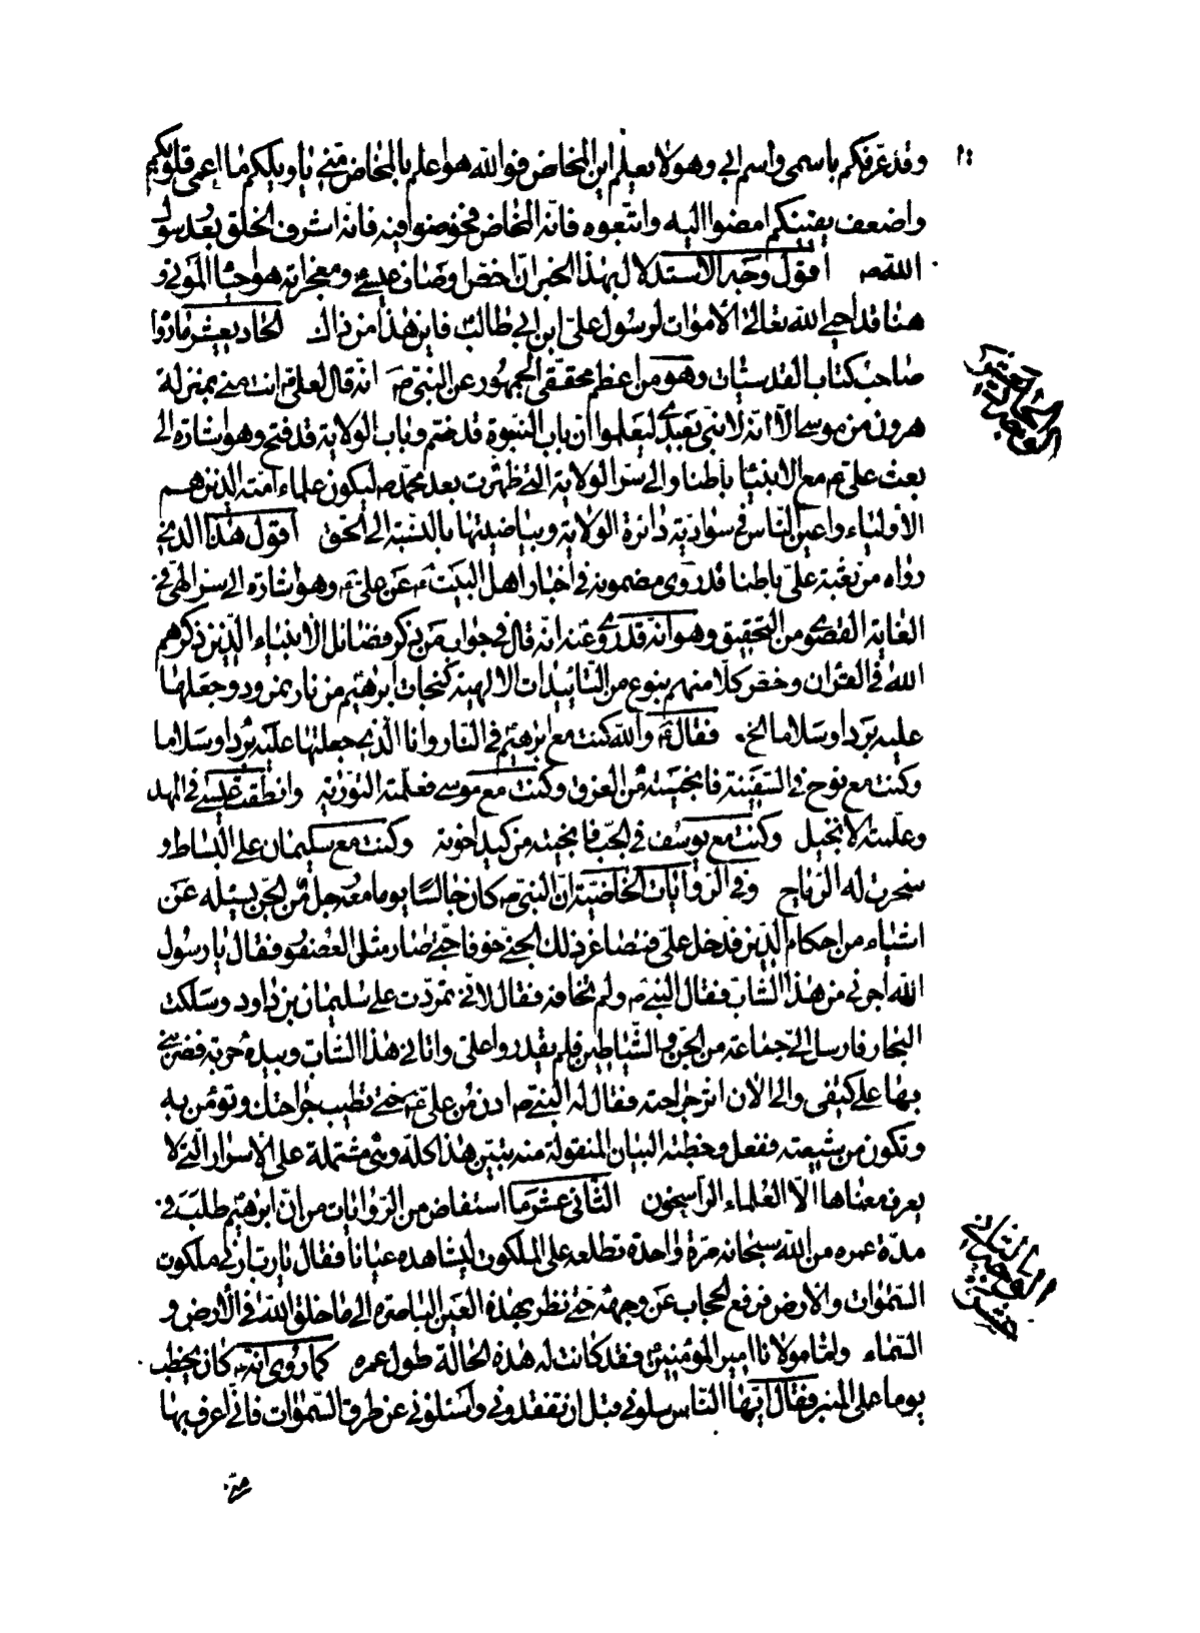 وقد عرفكم باسمى واسم ابى وهو لا يعلم اين المخاض فوالله هو اعلم بالمخاض منى يا ويلكم ما اعمى قلوبكم
واضعف يقينكم امضوا اليه واتبعوه فانه المخاض فخوضوا فيه فانه اشرف الخلق بعد رسول
الله ص اقول وجه الاستدلال بهذا الخبر ان اخص اوصاف عيسى ع ومعجزاته هو احياء الموتى و
هنا قد احيى الله تعالى الاموات لرسول على ابن ابى طالب ع فاين هذا من ذاك الحاديعشر ما رواه
صاحب كتاب القدسيات وهو من اعظم محققى الجمهور عن النبى ص انه قال لعلى ع انت منى بمنزلة
هرون من موسى الا انه لا نبى بعدى ليعلموا ان باب النبوة قد ختم وباب الولاية قد فتح وهو اشارة الى
بعث على ع مع الانبياء باطنا والى سر الولاية التى ظهرت بعد محمد ص ليكون علماء امته الذين هم
الاولياء واعين الناس فى سوادية دائرة الولاية وبياضيتها بالنسبة الى الحق اقول هذا الذى
رواه من بعثة على باطنا قد روى مضمونه فى اخبار اهل البيت ع عن على ع وهو اشارة الى سر الهى فى
الغاية القصوى من التحقيق وهو انه قد روى عنه انه قال فى جواب من ذكر فضائل الانبياء الذين ذكرهم
الله فى القران وخص كلا منهم بنوع من التائيدات الالهية كنجات ابرهيم من نار نمرود وجعلها
عليه بردا وسلاما الخ فقال ع والله كنت مع ابرهيم فى النار وانا الذى جعلتها عليه بردا وسلاما
وكنت مع نوح فى السفينة فانجيته من الغرق وكنت مع موسى فعلمته التوراية وانطقت عيسى فى المهد
وعلمته الانجيل وكنت مع يوسف فى الجب فانجيته من كيد اخوته وكنت مع سليمان على البساط و
سخرت له الرياح وفى الروايات الخاصية ان النبى ص كان جالسا يوما معه رجل من الجن يسئله عن
اشياء من احكام الدين فدخل على فتصاغر ذلك الجنى خوفا حتى صار مثل العصفور فقال يا رسول
الله اجرنى من هذا الشاب فقال النبى ص ولم تخافه فقال لانى تمردت على سليمان بن داود وسلكت
البحار فارسل الى جماعة من الجن والشياطين فلم يقدروا على واتانى هذا الشاب وبيده حربة فضربنى
بها على كتفى والى الان اثر جراحته فقال له النبى ص ادن من على ع حتى تطيب جراحتك وتؤمن به
وتكون من شيعته ففعل وخطبة البيان المنقولة منه تبين هذا كله وهى مشتملة على الاسرار التى لا
يعرف معناها الا العلماء الراسخون الثانى عشر ما استفاض من الروايات من ان ابرهيم طلب فى
مدة عمره من الله سبحانه مرة واحدة تطلعه على الملكوت ليشاهده عيانا فقال يا رب ارنى ملكوت
السموات والارض فرفع الحجاب عن وجهه حتى نظر بهذه العين الباصرة الى ما خلق الله فى الارض و
السماء واما مولانا امير المؤمنين فقد كانت له هذه الحالة طول عمره كما روى انه ع كان يخطب
يوما على المنبر فقال ايها الناس سلونى قبل ان تفقدونى واسئلونى عن طرق السموات فانى اعرف بها